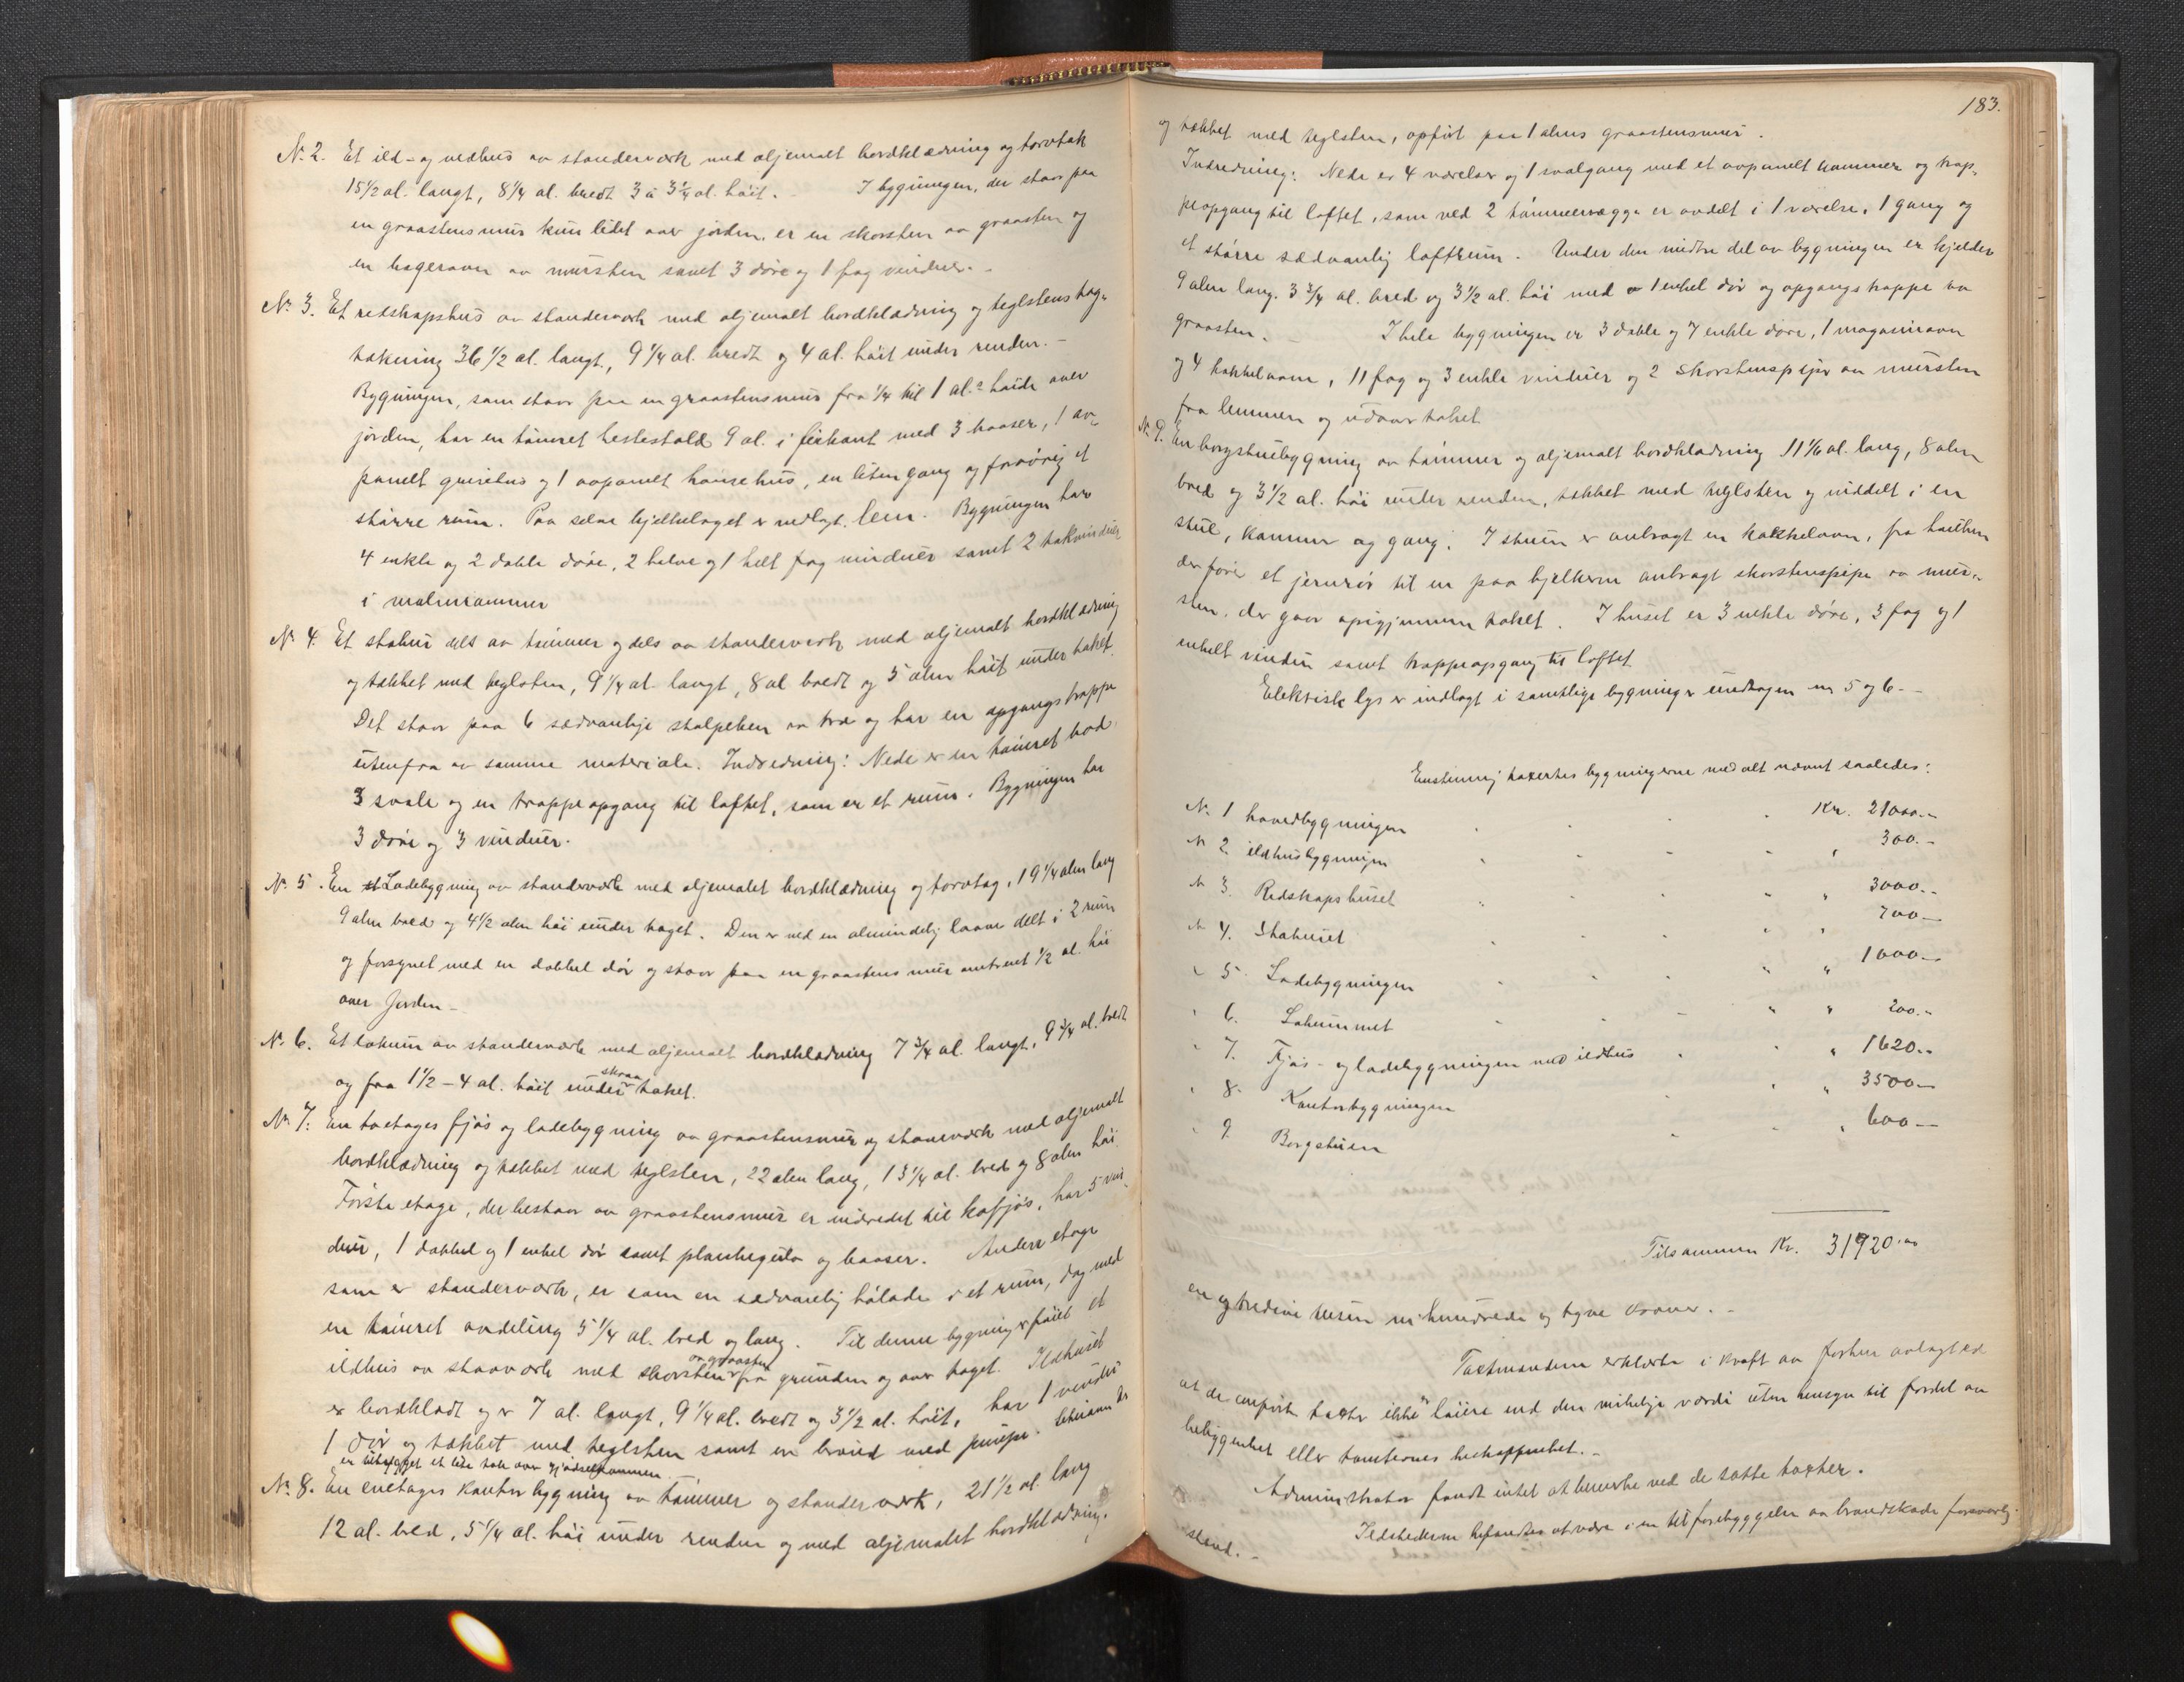 No 2. Et ild- og vedhus av standerverk med oljemalt bordklædning og torvtak
15 1/2 al. langt, 8 1/4 al. bredt 3 a 3 1/4 al. høit. - I bygningen, der staar paa
en graastensmur kun litet over jorden, er en skorsten av graasten og
en bagerovn av mursten samt 3 døre og 1 fag vinduer. -
No 3. Et redskapshus av standerverk med oljemalt bordklædning og teglstenstag-
tækning 36 1/2 al. langt, 9 1/4 al. bredt og 4 al. høit under renden. -
Bygningen, som staar paa en graastensmur fra 1/4 til 1 al.s høide over
jorden, har en tømret hestestald 9 al. i firkant med 3 baaser, 1 av-
panelt grisehus og 1 avpanelt hønsehus, en liten gang og forøvrig et
større rum. Paa selve bjelkelaget er nedlagt lem. Bygningen har
4 enkle og 2 doble døre, 2 halve og 1 helt fag vinduer samt 2 takvinduer
i malmrammer
No 4. Et stabur dels av tømmer og dels av standerverk med oljemalt bordklædning
og tækket med teglsten, 9 1/4 al. langt, 8 al bredt og 5 alen høit under taket.
Det staar paa 6 sædvanlige stolpeben av træ og har en opgangstrappe
utenfra av samme materiale. Indredning: Nede er en tømret bod
3 svale og en trappeopgang til loftet, som er et rum. Bygningen har
3 døre og 3 vinduer.
No 5. En Ladebygning av standerverk med oljemalet bordklædning og torvtag, 19 1/4 alen lang
9 alen bred og 4 1/2 alen høi under taget. Den er ved en almindelig laave delt i 2 rum
og forsynet med en dobbel dør og staar paa en graastens mur omtrent 1/2 al. høi
over Jorden -
No 6. Et lokum av standerværk med oljemalt bordklædning 7 3/4 al. langt, 9 3/4 al. bredt
og fra 1 1/2 - 4 al. høit under skraa taket.
No 7. En toetages fjøs og ladebygning av graastensmur og stanverk med oljemalt
bordklædning og tækket med teglsten, 22 alen lang, 13 1/4 al. bred og 8 alen høi.
Første etage, der bestaar av graastensmur er indredet til kofjøs, har 5 vin-
duer, 1 dobbel og 1 enkel dør samt plankegulv og baaser. Anden etage
som er standerværk, er som en sædvanlig hølade i et rum, dog med
en tømret avdeling 5 1/4 al. bred og lang. Til denne bygning er føiet et
ildhus av stavverk med skorsten av graasten fra grunden og over taget. Ildhuset
er bordklædt og er 7 al. langt, 9 1/4 al. bredt og 3 1/2 al. høit, har 1 vindu
1 dør og tækket med teglsten samt en brønd med pumpe.
er tilbygget et lite tak over gjødselkummen.
No 8. En enetages kontorbygning av tømmer og standerverk, 21 1/2 al. lang
12 al. bred, 5 1/4 al. høi under renden og med oljemalet bordklædning,
183.
og tækket med teglsten, opført paa 1 alens graastensmur.
Indredning: Nede er 4 værelser og 1 svalgang med et avpanelt kammer og trap-
peopgang til loftet, som ved 2 tømmervægge er avdelt i 1 værelse, 1 gang og
et større sædvanlig loftrum. Under den midtre del av bygningen er kjelder
9 alen lang, 3 3/4 al. bred og 3 1/2 al. høi med 1 enkel dør og opgangstrappe av
graasten. - I hele bygningen er 3 doble og 7 enkle døre, 1 magasinovn
og 4 kakkelovne, 11 fag og 3 enkle vinduer og 2 skorstenspiper av mursten
fra lemmen og utover taket
No 9. En borgstuebygning av tømmer og oljemalt bordklædning 11 1/6 al. lang, 8 alen
bred og 3 1/2 al. høi under renden, tækket med teglsten og inddelt i en
stue, kammer og gang. I stuen er anbragt en kakkelovn, fra hvilken
der fører et jernrør til en paa bjelkerne anbragt skorstenspipe av mur-
sten, der gaar opigjennem taket. I huset er 3 enkle døre, 3 fag og 1
enkelt vindu samt trappeopgang til loftet
Elektrisk lys er indlagt i samtlige bygninger undtagen nr 5 og 6. -
Enstemmig takertes bygningerne med alt nævnt saaledes:
No 1 hovedbygningen Kr. 21000.-
No 2 ildhusbygningen " 300.-
No 3. Redskapshuset " 3000.-
No 4. Staburet " 700-
" 5. Ladebygningen " 1000-
" 6. Lokummet " 200.-
" 7. Fjøs- og ladebygningen med ildhus " 1620.-
" 8. Kontorbygningen " 3500-
" 9. Borgstuen " 600-
Tilsammen Kr. 31920.00
en og tredive tusen ni hundrede og tyve kroner. -
Takstmændene erklærte i kraft av forhen avlagt ed
at de anførte takster ikke er høiere end den virkelige værdi uten hensyn til fordel av
beliggenhet eller tomternes beskaffenhet. -
Administrator fandt intet at bemerke ved de satte takster.
Ildstederne befandtes at være i en til forebyggelse av brandskade forsvarlig
stand. -